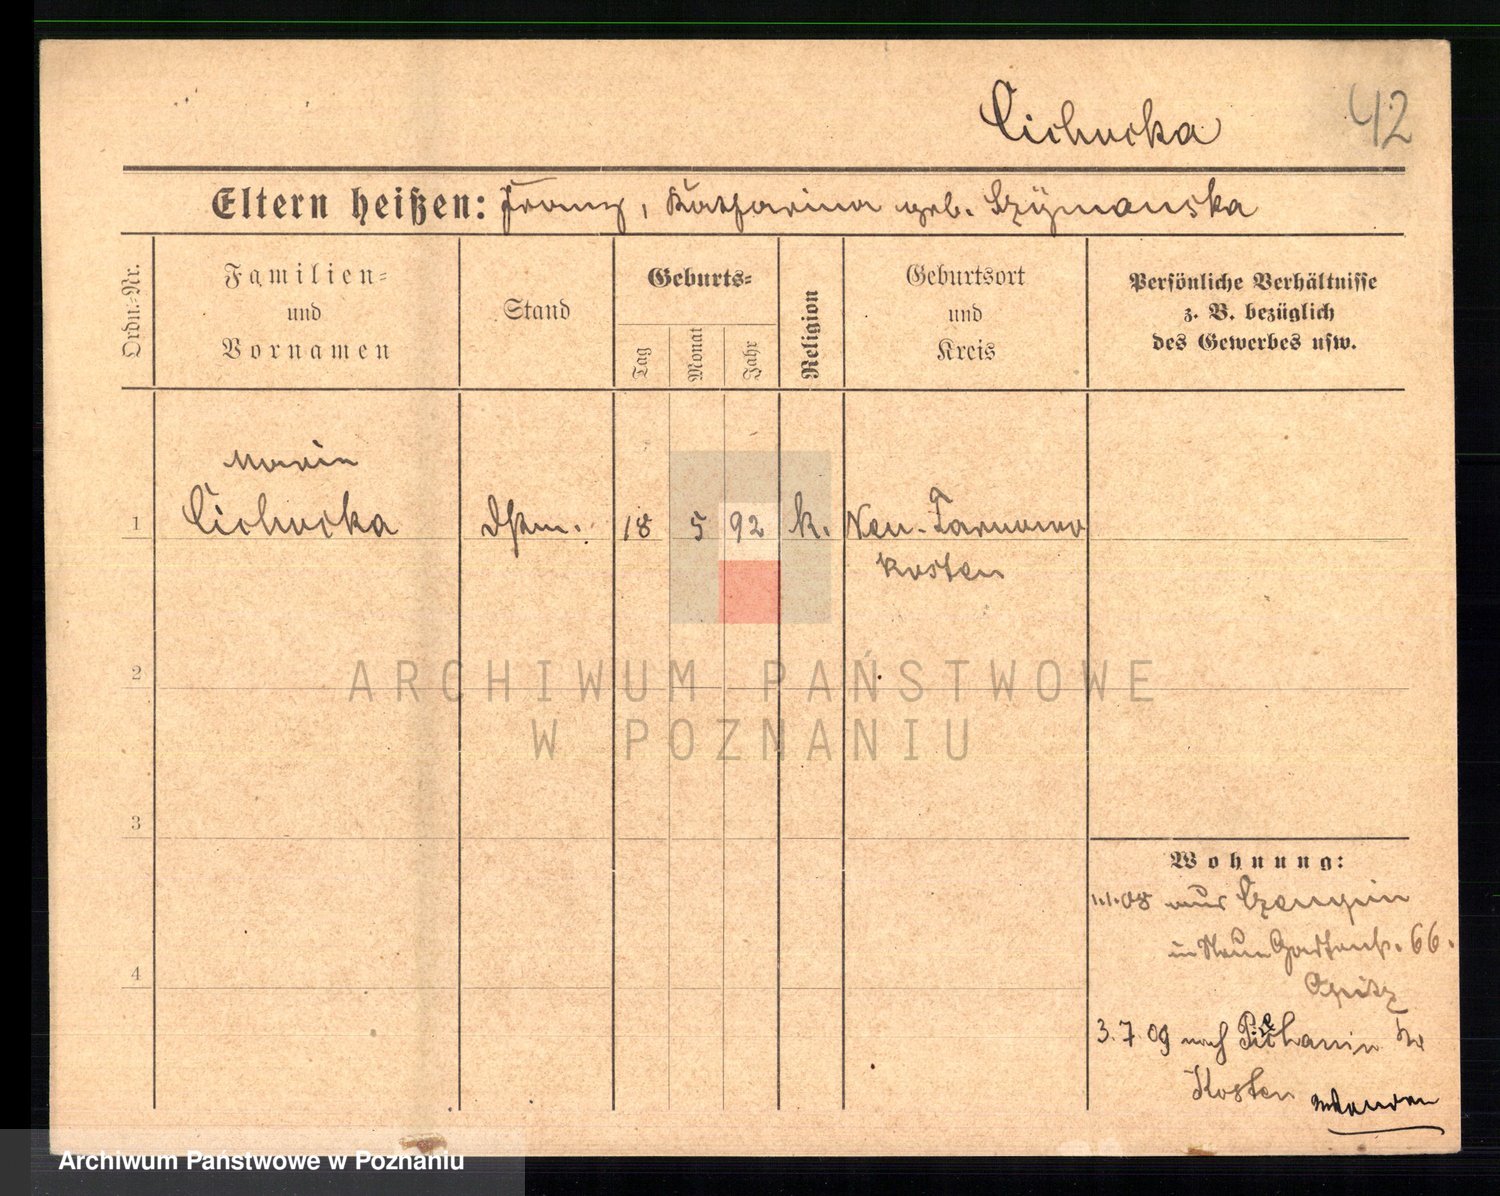 Cichocka 42
Eltern heißen: Franz, Katharina geb. Szymanska
Ordn.-Nr.
Familien-
und
Vornamen
Stand
Geburts-
Tag
Monat
Jahr
Religion
Geburtsort
und
Kreis
Persönliche Verhältnisse
z. B. bezüglich
des Gewerbes usw.
Maria
1 Cichocka 18 5 92 k. Neu-Tarnowo
Kosten
2
ARCHIWUM PAŃSTWOWE
W POZNANIU
3
Wohnung:
1.1.08 aus Czempin
in Neue Gartenstr. 66.
Opitz
3.7 09 nach
Kosten
4
Archiwum Państwowe w Poznaniu